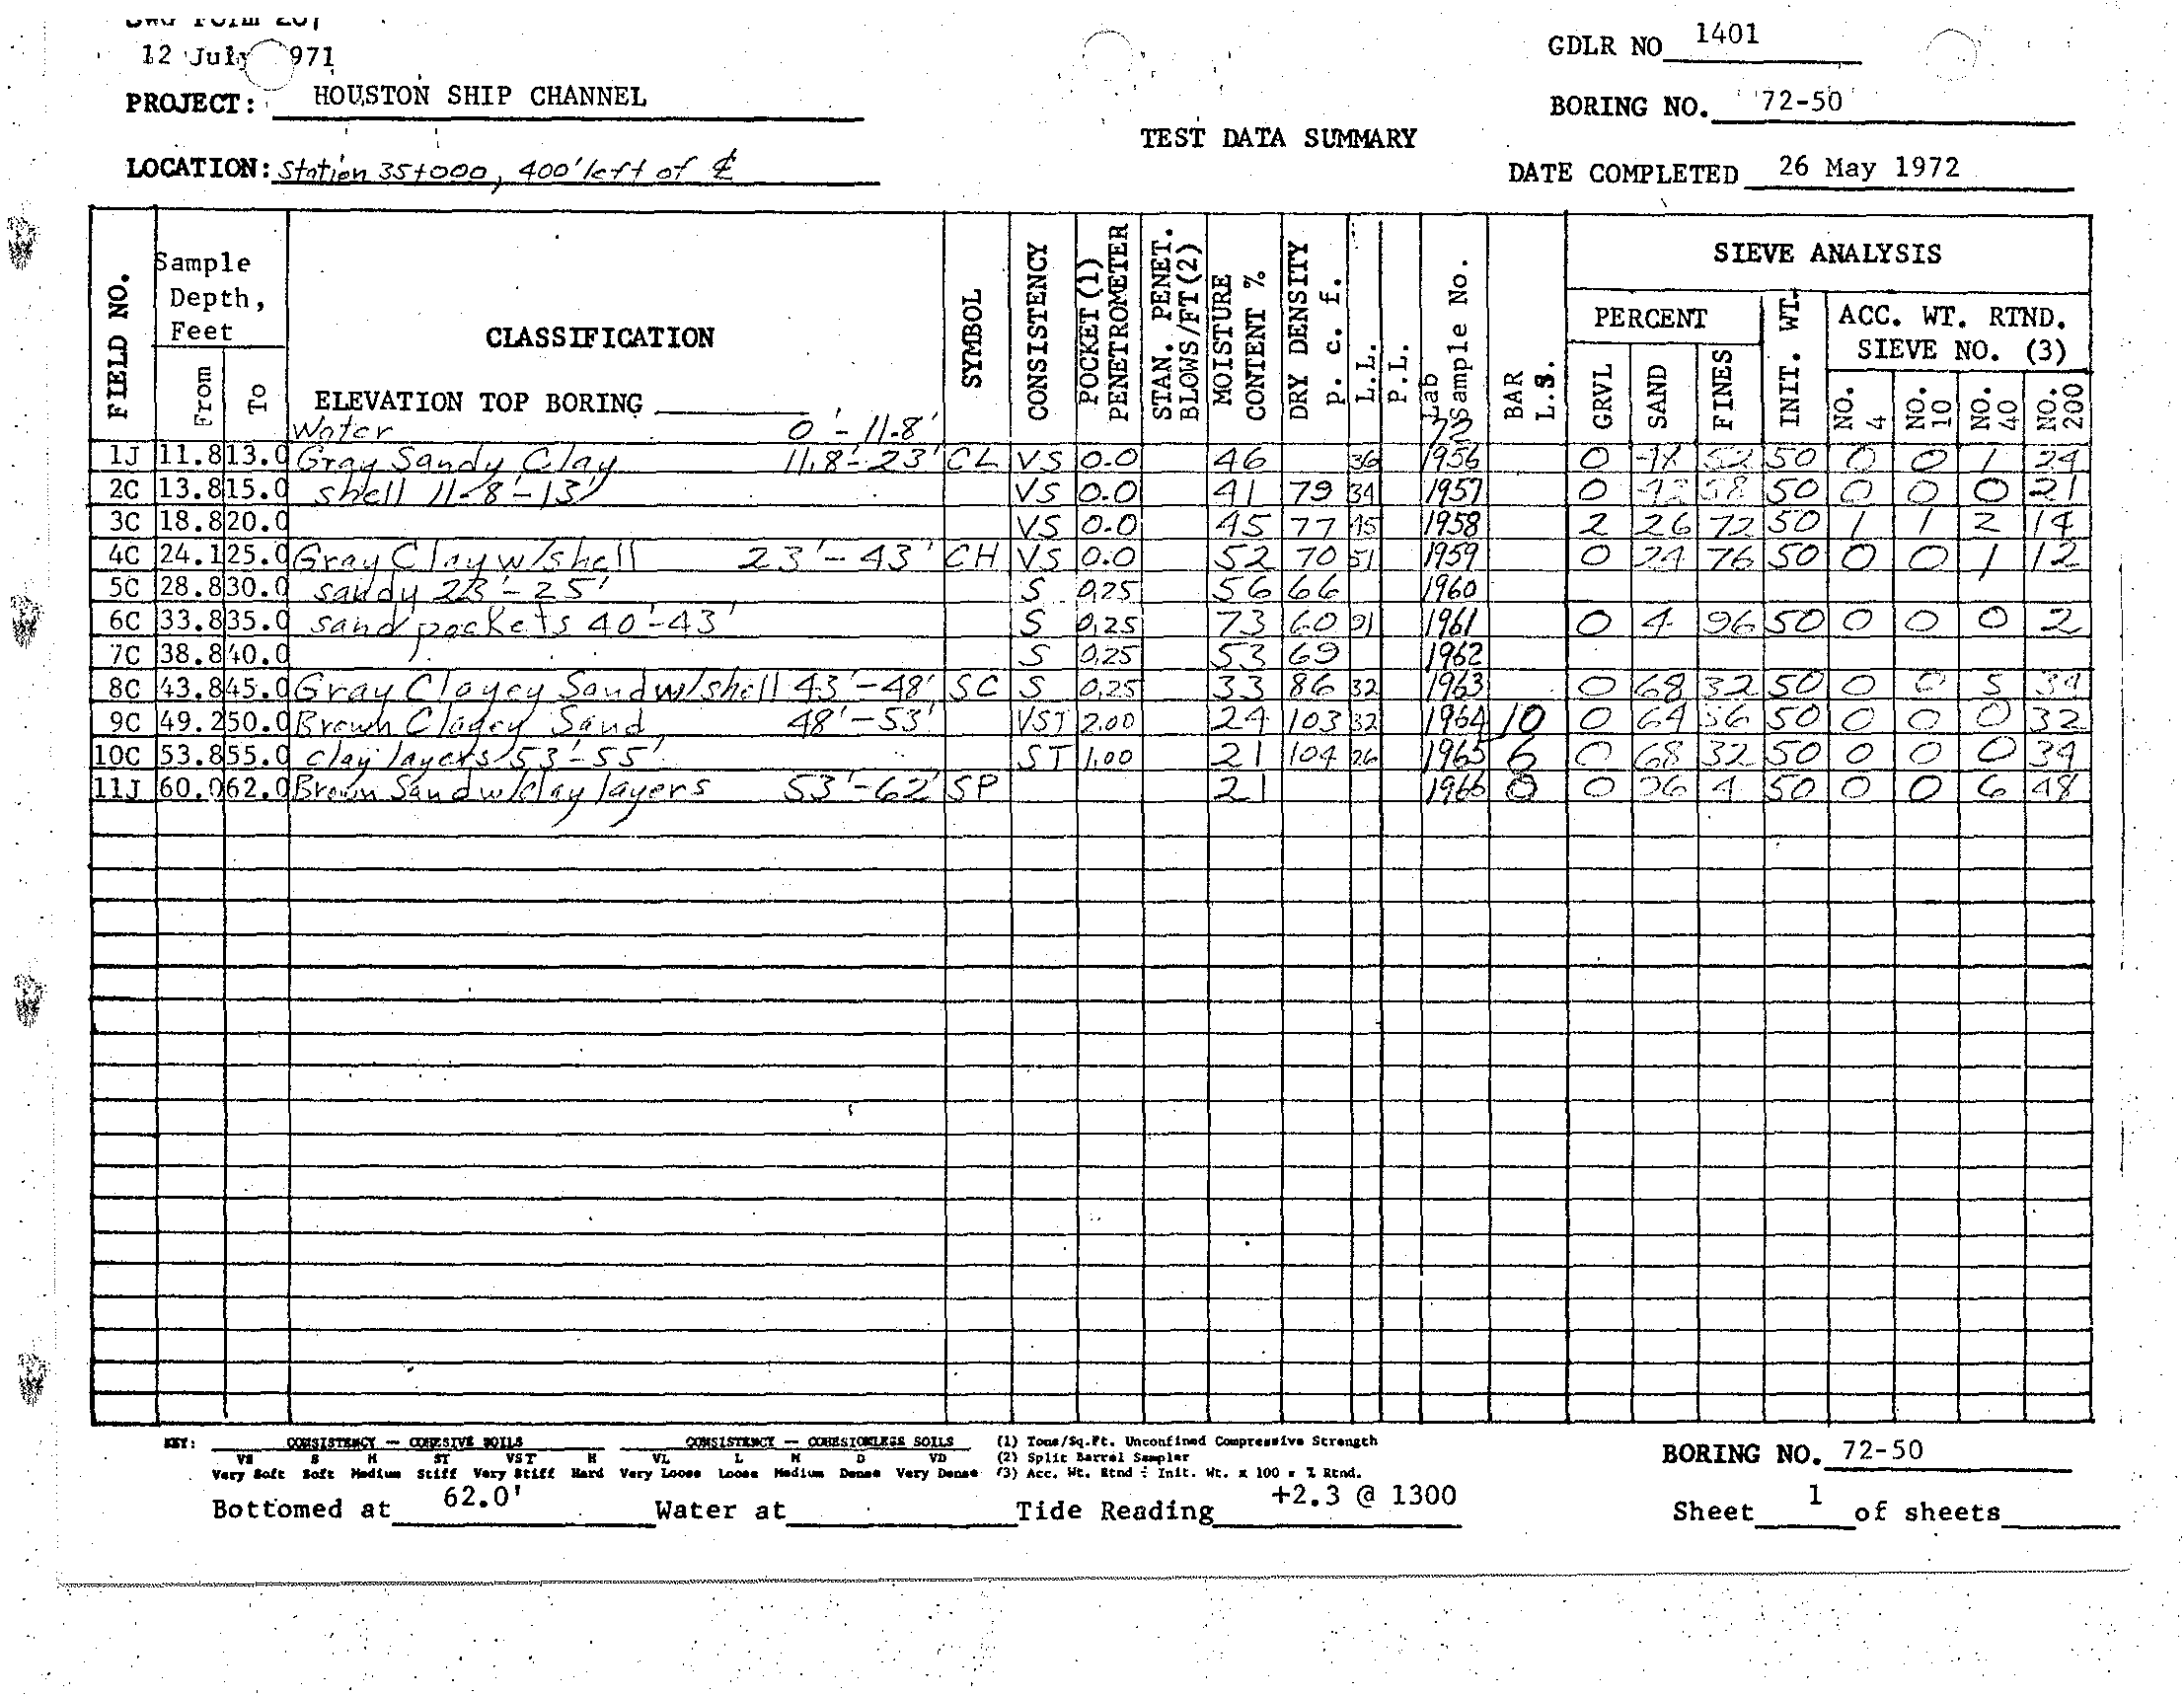 12 July 1971
GDLR NO 1401
PROJECT: HOUSTON SHIP CHANNEL
BORING NO. 72-50
TEST DATA SUMMARY
LOCATION: Station 35+000, 400' left of ℄
DATE COMPLETED 26 May 1972
FIELD NO. Sample Depth, Feet From To CLASSIFICATION SYMBOL CONSISTENCY POCKET (1) PENETROMETER STAN. PENET. BLOWS/FT (2) MOISTURE CONTENT % DRY DENSITY p. c. f. L.L. P.L. Lab Sample No. BAR L.S. SIEVE ANALYSIS
PERCENT GRVL SAND FINES INIT. WT. ACC. WT. RTND. SIEVE NO. (3) NO. 4 NO. 10 NO. 40 NO. 200
ELEVATION TOP BORING
Water 0'-11.8' 72
1J 11.8 13.0 Gray Sandy Clay 11.8'-23' CL VS 0.0 46 36 1956 0 52 50 0 0 1 24
2C 13.8 15.0 shell 11.8'-13' VS 0.0 41 79 34 1957 0 58 50 0 0 0 21
3C 18.8 20.0 VS 0.0 45 77 45 1958 2 26 72 50 1 1 2 14
4C 24.1 25.0 Gray Clay w/shell 23'-43' CH VS 0.0 52 70 51 1959 0 24 76 50 0 0 1 12
5C 28.8 30.0 sandy 23'-25' S 0.25 56 66 1960
6C 33.8 35.0 sand pockets 40'-43' S 0.25 73 60 91 1961 0 4 96 50 0 0 0 2
7C 38.8 40.0 S 0.25 53 69 1962
8C 43.8 45.0 Gray Clayey Sand w/shell 43'-48' SC S 0.25 33 86 32 1963 0 68 32 50 0 0 5 34
9C 49.2 50.0 Brown Clayey Sand 48'-53' VST 2.00 24 103 32 1964 10 0 64 36 50 0 0 0 32
10C 53.8 55.0 clay layers 53'-55' ST 1.00 21 104 26 1965 6 0 68 32 50 0 0 0 34
11J 60.0 62.0 Brown Sand w/clay layers 53'-62' SP 21 1966 0 0 96 4 50 0 0 6 48
KEY: CONSISTENCY — COHESIVE SOILS CONSISTENCY — COHESIONLESS SOILS (1) Tons/Sq.Ft. Unconfined Compressive Strength
VS S M ST VST H VL L M D VD (2) Split Barrel Sampler
Very Soft Soft Medium Stiff Very Stiff Hard Very Loose Loose Medium Dense Very Dense (3) Acc. Wt. Rtnd ÷ Init. Wt. x 100 = % Rtnd.
BORING NO. 72-50
Bottomed at 62.0' Water at Tide Reading +2.3 @ 1300 Sheet 1 of sheets